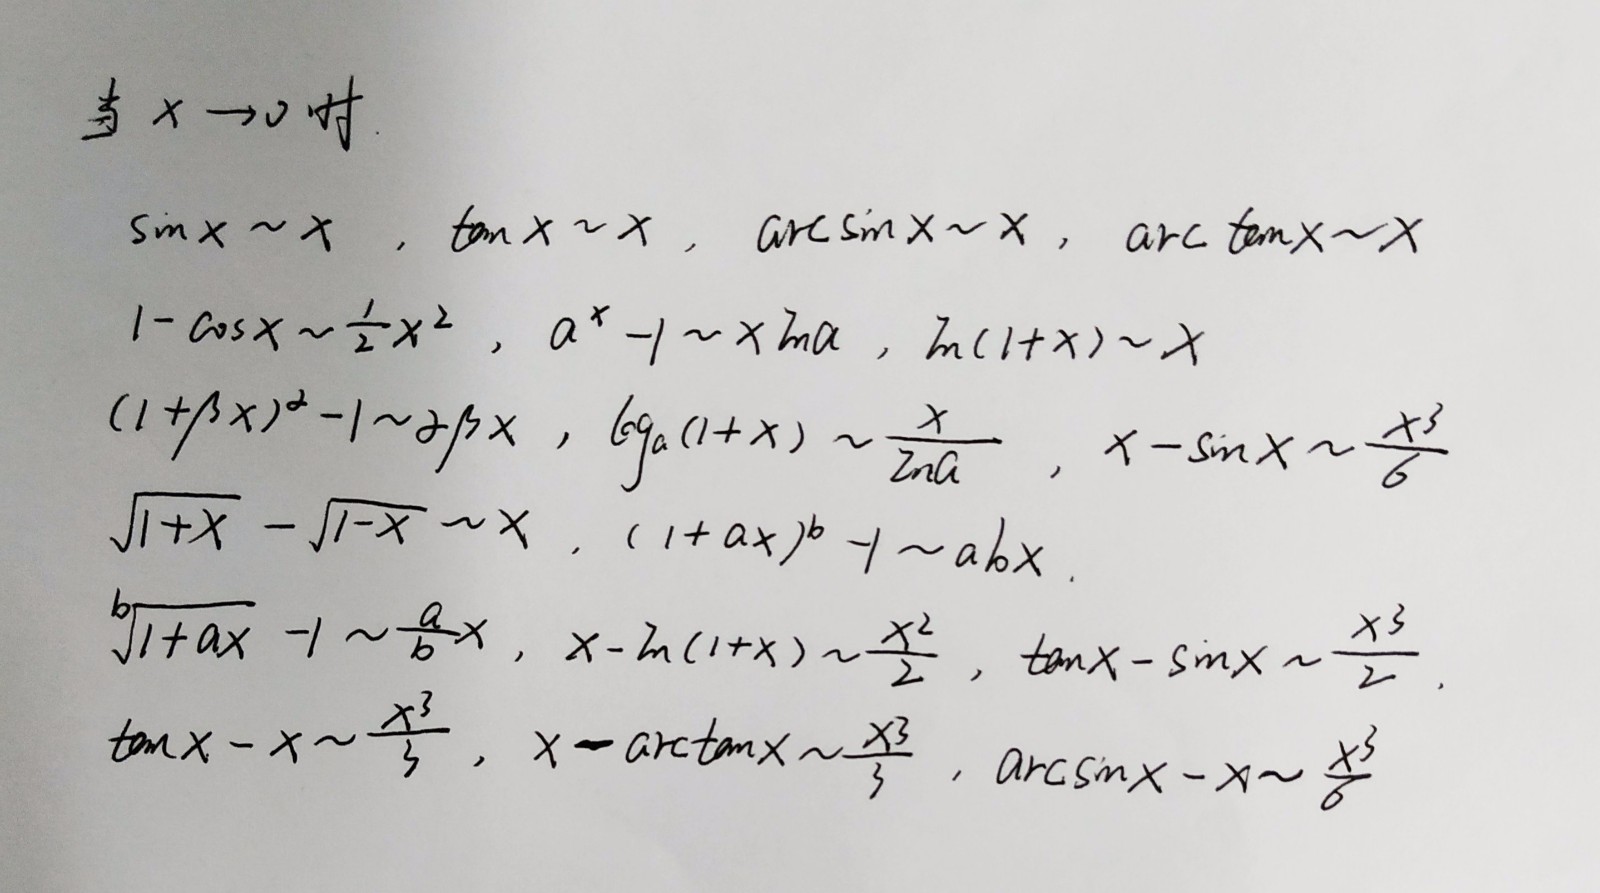 当 x→0时.
sinx~x , tanx~x , arcsinx~x , arctanx~x
1-cosx~\frac{1}{2}x² , aˣ-1~xlna , ln(1+x)~x
(1+βx)^α-1~αβx , logₐ(1+x)~\frac{x}{lna} , x-sinx~\frac{x³}{6}
√(1+x)-√(1-x)~x , (1+ax)ᵇ-1~abx .
ᵇ√(1+ax)-1~\frac{a}{b}x , x-ln(1+x)~\frac{x²}{2} , tanx-sinx~\frac{x³}{2} .
tanx-x~\frac{x³}{3} , x-arctanx~\frac{x³}{3} , arcsinx-x~\frac{x³}{6}